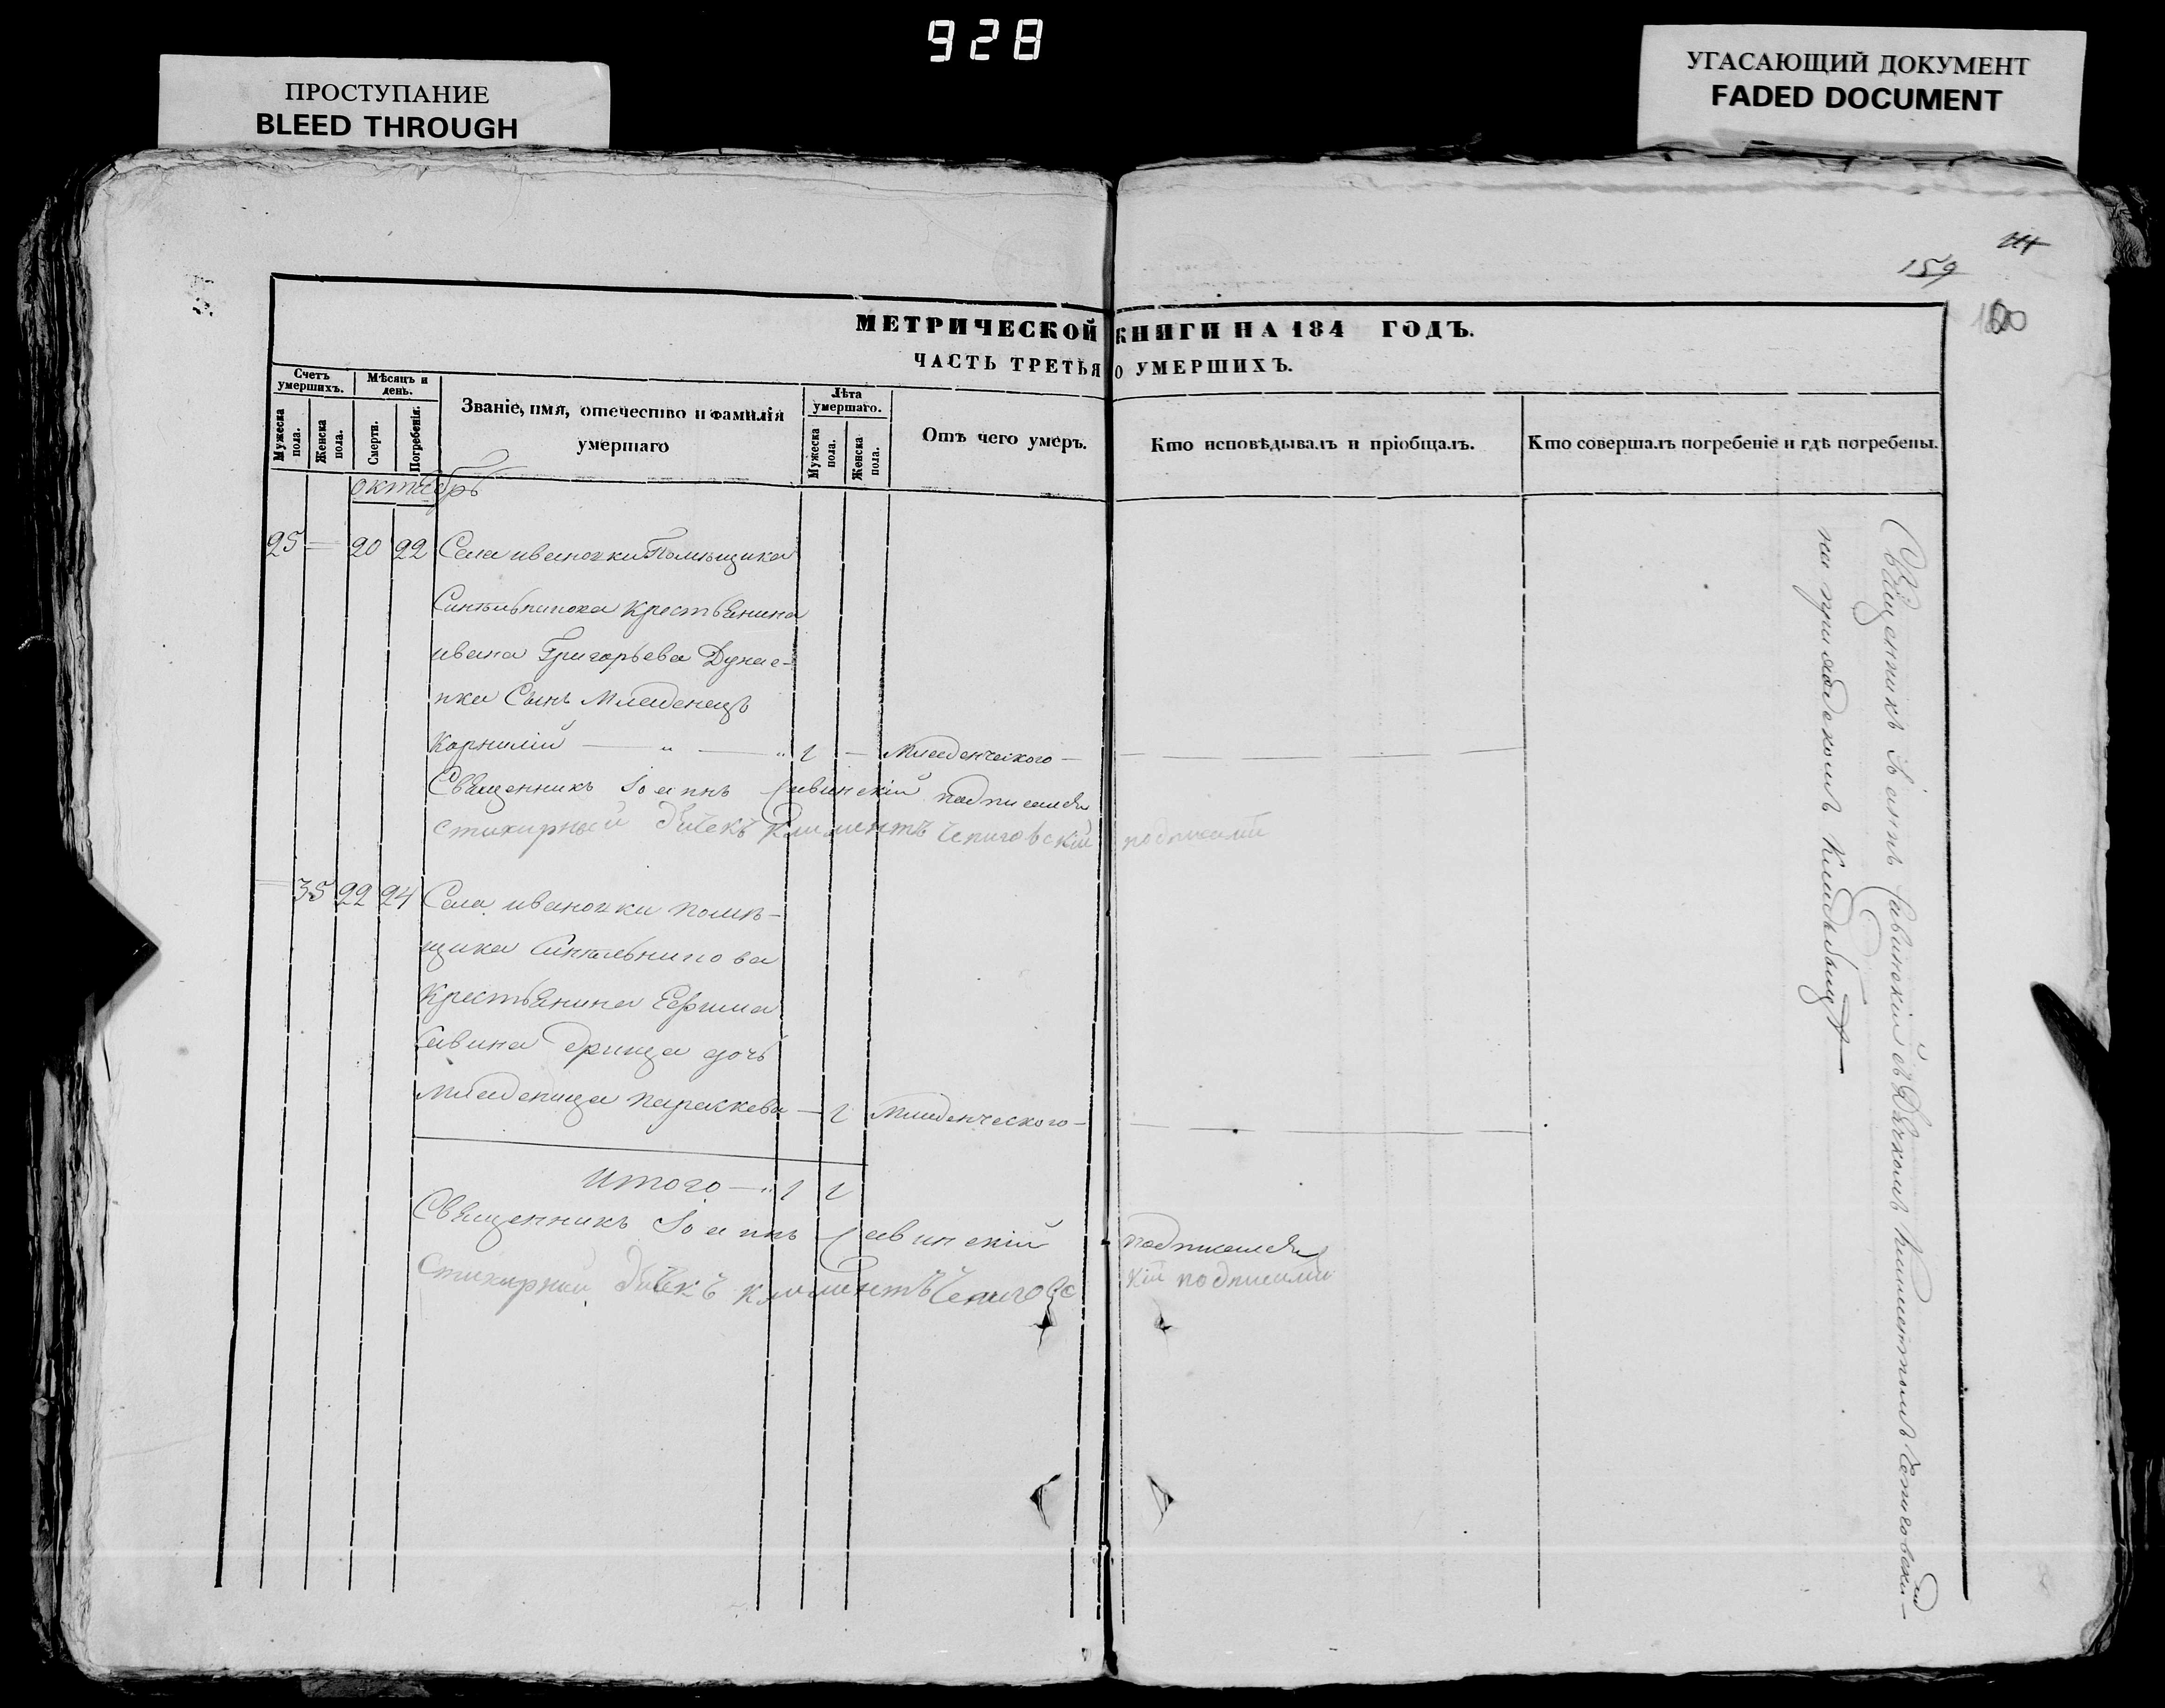 928
ПРОСТУПАНИЕ
BLEED THROUGH
УГАСАЮЩИЙ ДОКУМЕНТ
FADED DOCUMENT
159
МЕТРИЧЕСКОЙ КНИГИ НА 184 ГОДЪ.
ЧАСТЬ ТРЕТЬЯ О УМЕРШИХЪ.
Счетъ умершихъ.
Мужеска пола.
Женска пола.
Мѣсяцъ и день.
Смерти.
Погребенія.
Званіе, имя, отечество и фамилія
умершаго
Лѣта умершаго.
Мужеска пола.
Женска пола.
Отъ чего умеръ.
Кто исповѣдывалъ и пріобщалъ.
Кто совершалъ погребеніе и гдѣ погребены.
октябрь
25 20 22 Села ивановки Помѣщика
Синельникова Крестьянина
ивана Григорьева Дунае-
нка Сынъ Младенецъ
Корнилій — " — " 1 — Младенческого —
Священникъ Іоаннъ Савинскій подписался
стихирный дьячекъ Климентъ Чениговскій подписалъ
35 22 24 Села ивановки помѣ-
щика Синельникова
Крестьянина Ефима
Савина дрища дочь
Младеница параскева — 1 Младенческого —
Итого — " 1 1
Священникъ Іоаннъ Савинскій подписался
Стихирный дьячекъ климентъ Чениговскій подписалъ
Священникъ Іоаннъ Савинскій съ Дьячкомъ Климентомъ Чениговским
на приходскомъ Кладбищѣ —